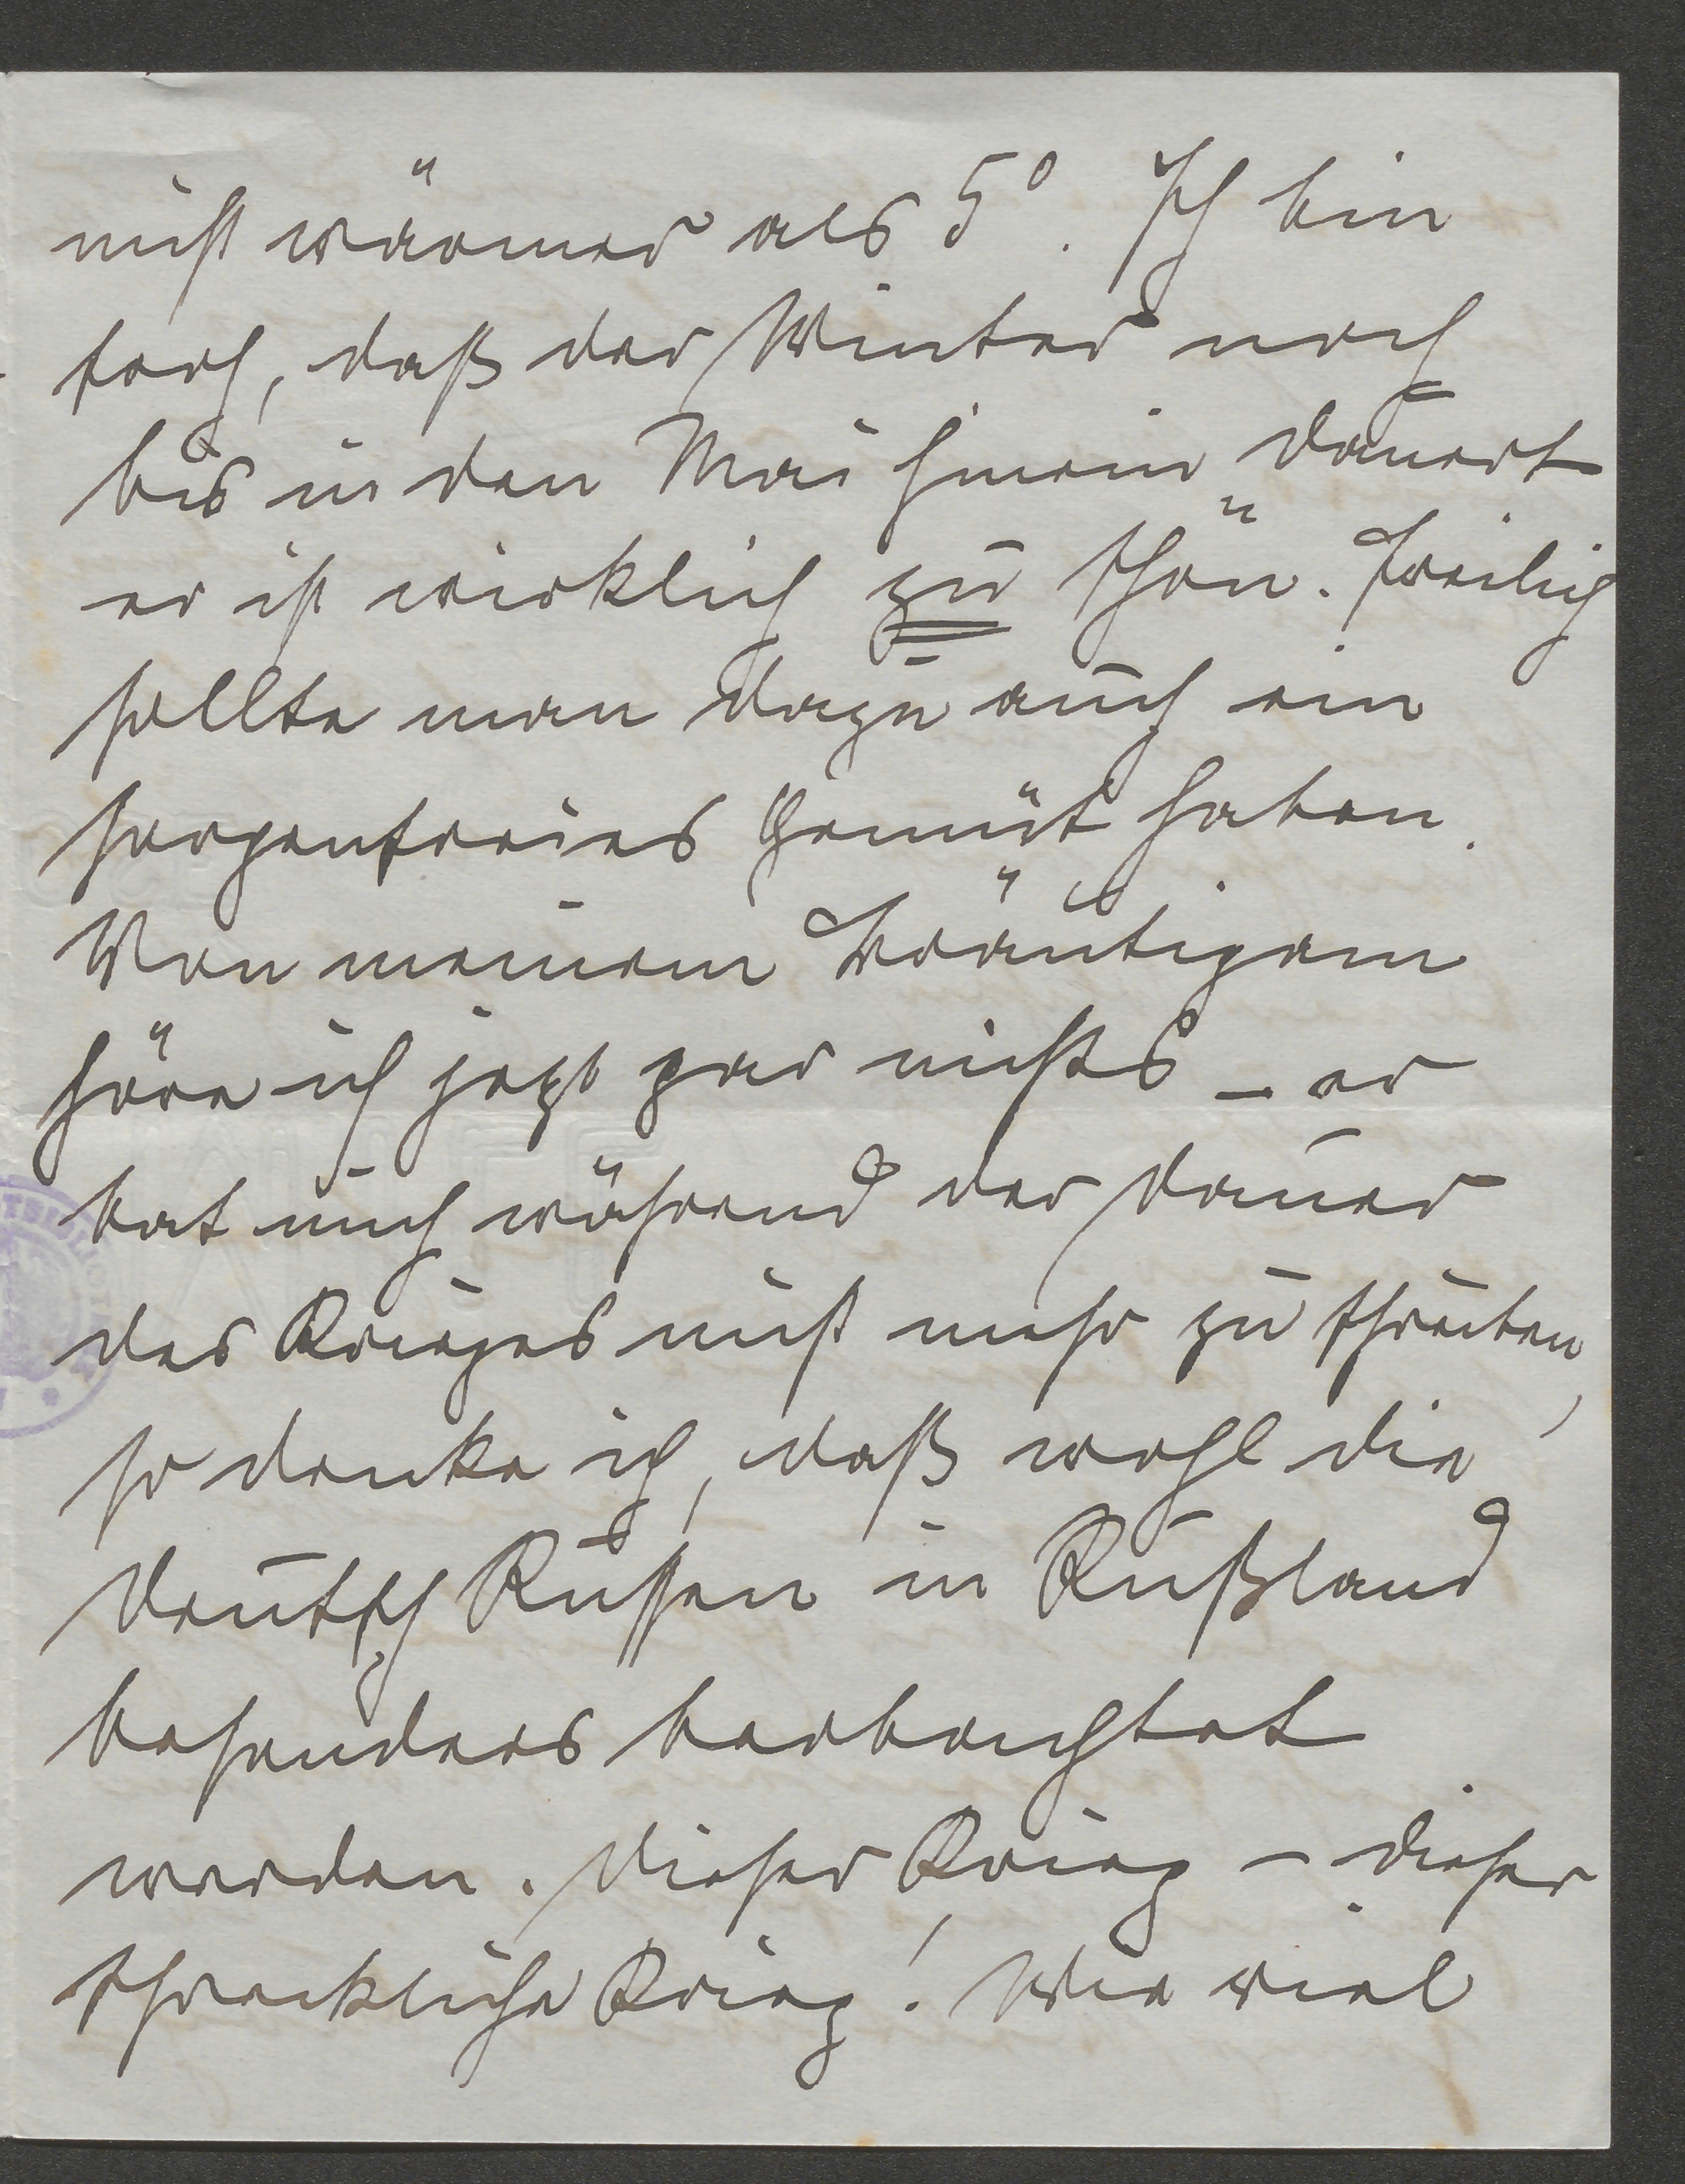 nicht wärmer als 5°. Ich bin
froh, daß der Winter noch
bis in den Mai hinein dauert
er ist wirklich zu schön. Freilich
sollte man dazu auch ein
sorgenfreies Gemüt haben.
Von meinem Bräutigam
höre ich jetzt gar nichts – er
bat mich während der Dauer
des Krieges nicht mehr zu schreiben,
so denke ich, daß wohl die
Deutsch Russen in Rußland
besonders beobachtet
werden. Dieser Krieg – dieser
schreckliche Krieg! Wie viel